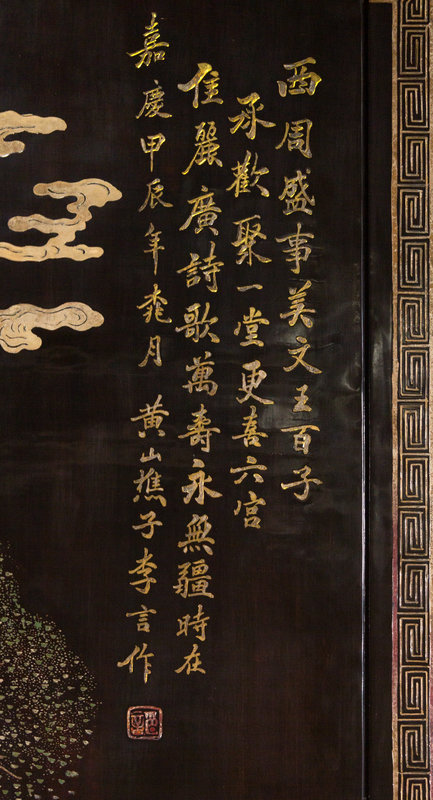 西周盛事美文王百子
承歡聚一堂更喜六宮
佳麗廣詩歌萬壽永無疆時在
嘉慶甲辰年桃月 黄山樵子李言作